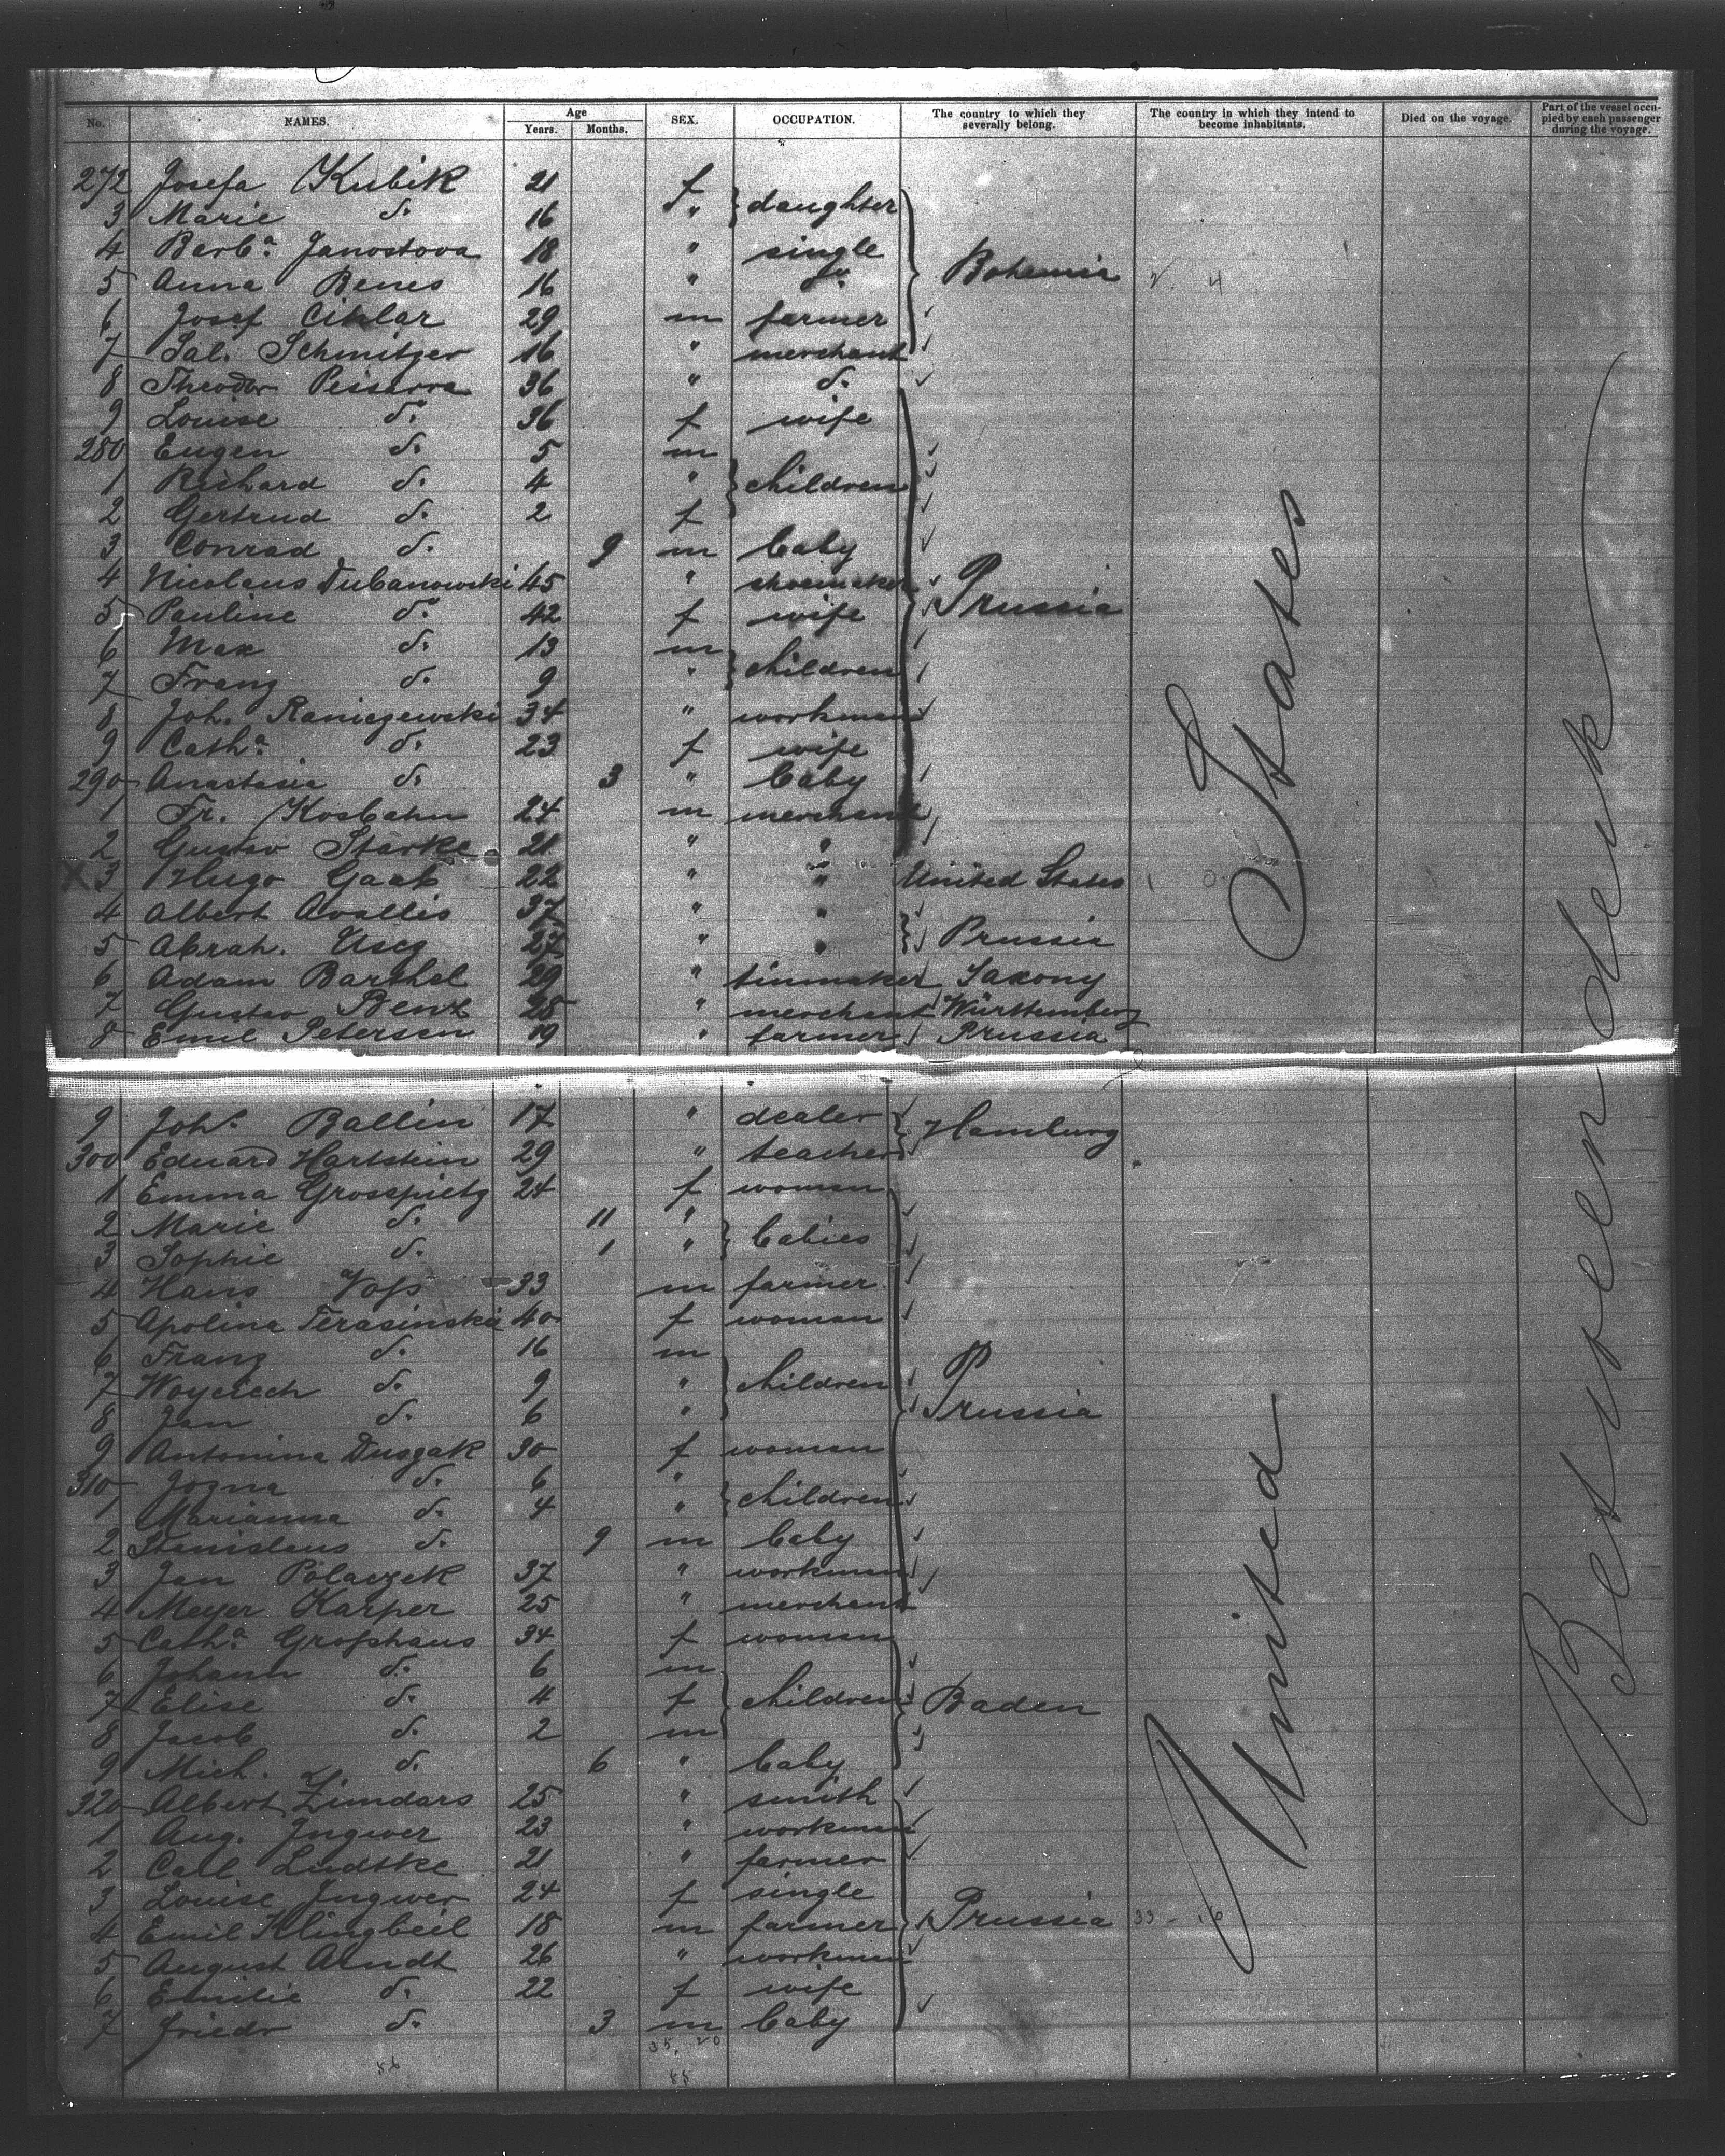 No. NAMES. Age Years. Months. SEX. OCCUPATION. The country to which they severally belong. The country in which they intend to become inhabitants. Died on the voyage. Part of the vessel occupied by each passenger during the voyage.
272 Josefa Kubik 21 f } daughter
3 Marie d. 16 "
4 Barb.a Janostova 18 " single
5 Anna Benes 16 " do. Bohemia
6 Josef Cihlar 29 m farmer
7 Sal. Schmitzer 16 " merchant
8 Theodor Pessarra 36 " d.
9 Louise d. 36 f wife
280 Eugen d. 5 m
1 Richard d. 4 " } children
2 Gertrud d. 2 f
3 Conrad d. 9 m baby
4 Nicolaus Dubanowski 45 " shoemaker Prussia
5 Pauline d. 42 f wife
6 Max d. 13 m
7 Franz d. 9 " } children
8 Joh. Raniszewski 34 " workman
9 Cath.a d. 23 f wife
290 Anastasia d. 3 " baby
1 Fr. Kosbahn 24 m merchant
2 Gustav Starke 21 " "
X 3 Hugo Gaab 22 " " United States
4 Albert Avallis 37 " "
5 Abrah. 27 " " } Prussia
6 Adam Barthel 29 " tinmaker Saxony
7 Gustav Benz 28 " merchant Württemberg
8 Emil Petersen 19 " farmer Prussia
9 Joh.s Ballin 17 " dealer } Hamburg
300 Eduard Hartstein 29 " teacher
1 Emma Grosspietz 24 f woman
2 Marie d. 11 " } babies
3 Sophie d. 1 "
4 Hans Voss 33 m farmer
5 Apolina Terasinska 40 f woman
6 Franz d. 16 m
7 Woyciech d. 9 " } children Prussia
8 Jan d. 6 "
9 Antonina Duszak 30 f woman
310 Jozna d. 6 "
1 Marianna d. 4 " } children
2 Stanislaus d. 9 m baby
3 Jan Polaczek 37 " workman
4 Meyer Karper 25 " merchant
5 Cath.a Grosshaus 34 f woman
6 Johann d. 6 m
7 Elise d. 4 f } children Baden
8 Jacob d. 2 m
9 Mich. d. 6 " baby
320 Albert Zimdars 25 " smith
1 Aug. Ingwer 23 " workman
2 Carl Ludtke 21 " farmer
3 Louise Ingwer 24 f single
4 Emil Klingbeil 18 m farmer Prussia
5 August Arndt 26 " workman
6 Emilie d. 22 f wife
7 Friedr d. 3 m baby
United States
Between deck